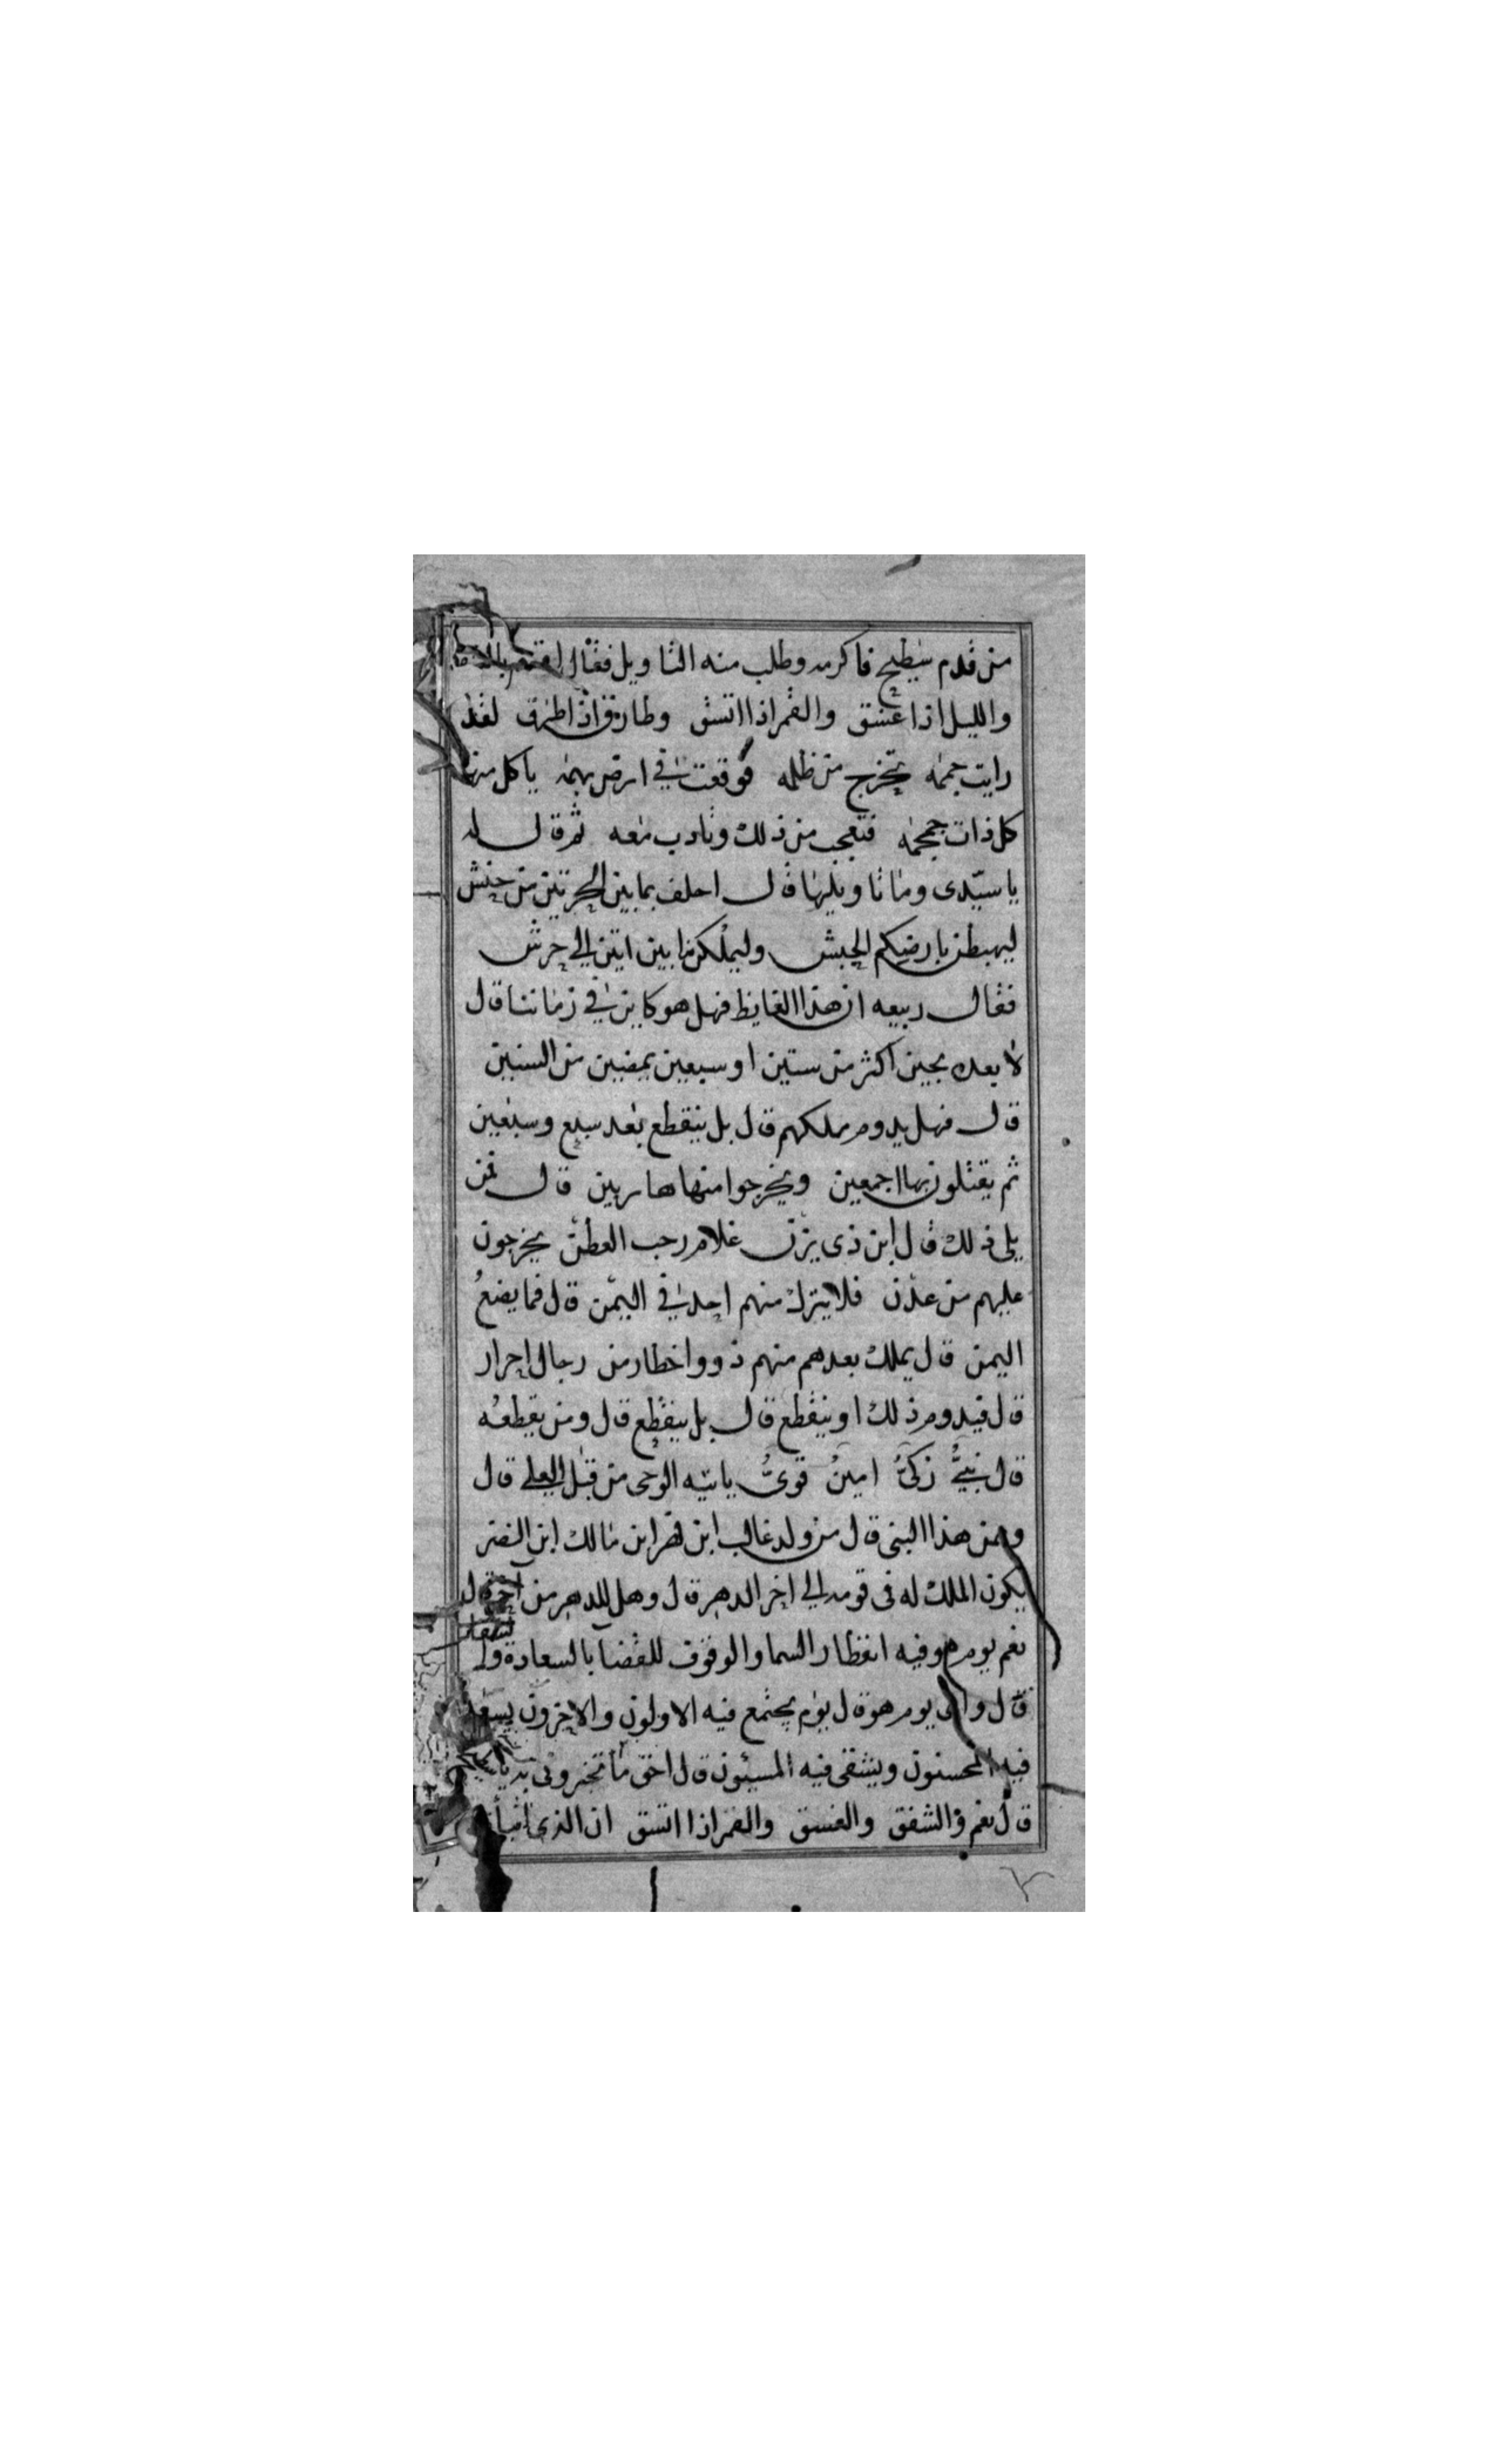 من قدم سطيح فاكرمه وطلب منه التاويل فقال اقسم
والليل اذا عشق والقمر اذا اتسق وطارق اذا طرق لقد
رايت جممه تخرج من ظلمه فوقعت في ارض بهمه ياكل منها
كل ذات جمجمه فتعجب من ذلك وتادب معه ثم قال له
يا سيدى وما تاويلها قال احلف بما بين الحرتين من حنش
ليهبطن بارضكم الحبش وليملكن ما بين ابين الى جرش
فقال ربيعه ان هذا الغايظ فهل هو كاين في زماننا قال
لا بعده بحين اكثر من ستين او سبعين يمضين من السنين
قال فهل يدوم ملكهم قال بل ينقطع بعد سبع وسبعين
ثم يقتلون بها اجمعين ويخرجوا منها هاربين قال فمن
يلى ذلك قال ابن ذى يزن غلام رحب العطن يخرجون
عليهم من عدن فلا يترك منهم احد في اليمن قال فما يضع
اليمن قال يملك بعدهم منهم ذووا اخطار من رجال احرار
قال فيدوم ذلك او ينقطع قال بل ينقطع قال ومن يقطعه
قال نبيٌّ زكىٌّ امينٌ قوىٌّ ياتيه الوحى من قبل العلى قال
وممن هذا النبى قال من ولد غالب ابن فهر ابن مالك ابن النضر
يكون الملك له فى قومه الى اخر الدهر قال وهل للدهر من آخر قال
نعم يوم هو فيه انفطار السما والوقوف للقضا بالسعادة والشقا
قال واى يوم هو قال يوم يجتمع فيه الاولون والاخرون يسعد
فيه المحسنون ويشقى فيه المسيئون قال احق ما تخبرونى به
قال نعم والشفق والغسق والقمر اذا اتسق ان الذى